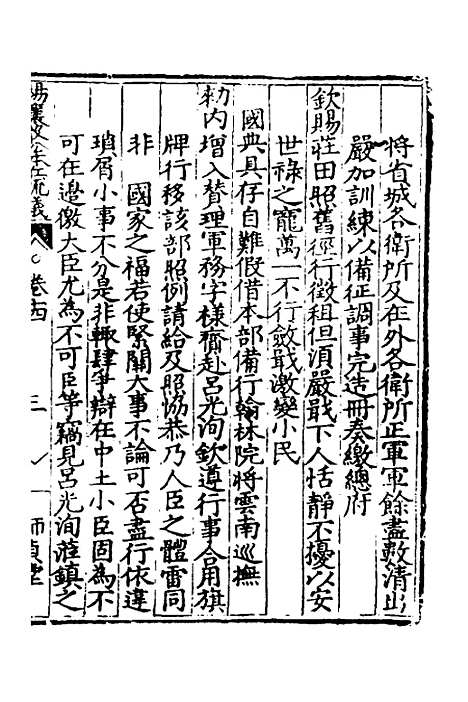 將省城各衛所及在外各衛所正軍軍餘盡數清出
嚴加訓練以備征調事完造冊奏繳總府
欽賜莊田照舊徑行徵租但須嚴戢下人恬靜不擾以安
世祿之寵萬一不行斂戢激變小民
國典具存自難假借本部備行翰林院將雲南巡撫
勑內增入贊理軍務字樣齎赴呂光洵欽遵行事合用旗
牌行移該部照例請給及照協恭乃人臣之體雷同
非　國家之福若使緊關大事不論可否盡行依違
瑣屑小事不分是非輒肆爭辯在中土小臣固為不
可在邊徼大臣尤為不可臣等竊見呂光洵蒞鎮之
卷四
三